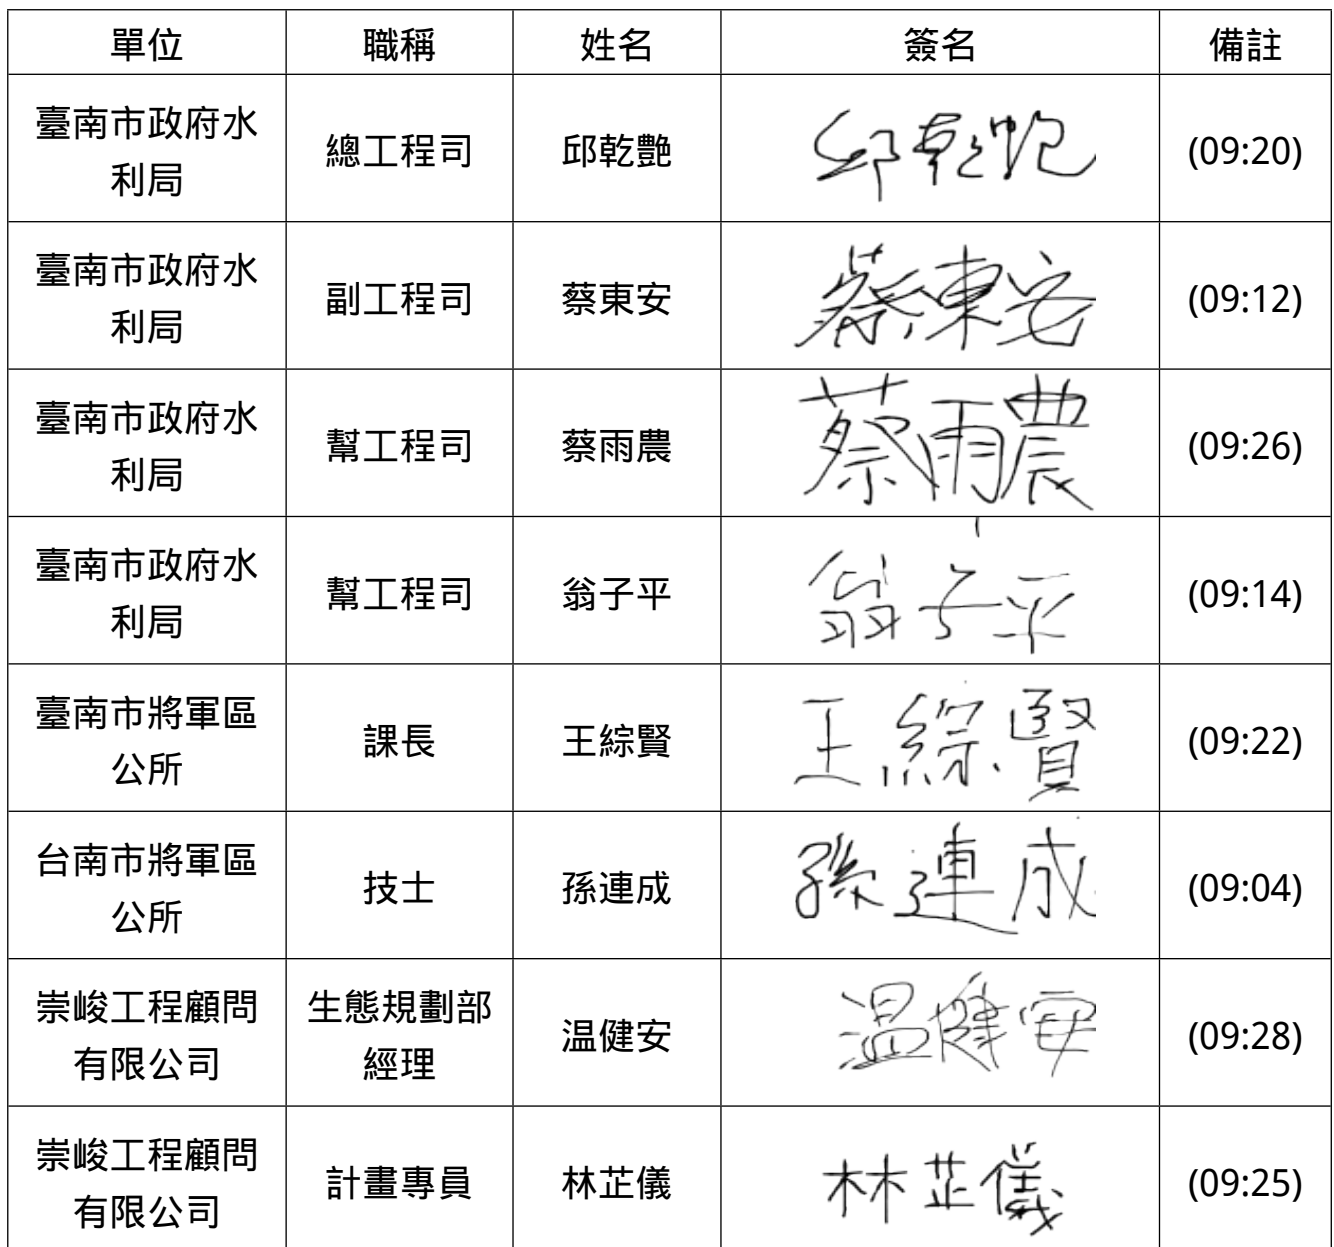 單位 職稱 姓名 簽名 備註
臺南市政府水
利局 總工程司 邱乾艷 邱乾艷 (09:20)
臺南市政府水
利局 副工程司 蔡東安 蔡東安 (09:12)
臺南市政府水
利局 幫工程司 蔡雨農 蔡雨農 (09:26)
臺南市政府水
利局 幫工程司 翁子平 翁子平 (09:14)
臺南市將軍區
公所 課長 王綜賢 王綜賢 (09:22)
台南市將軍區
公所 技士 孫連成 孫連成 (09:04)
崇峻工程顧問
有限公司 生態規劃部
經理 温健安 温健安 (09:28)
崇峻工程顧問
有限公司 計畫專員 林芷儀 林芷儀 (09:25)